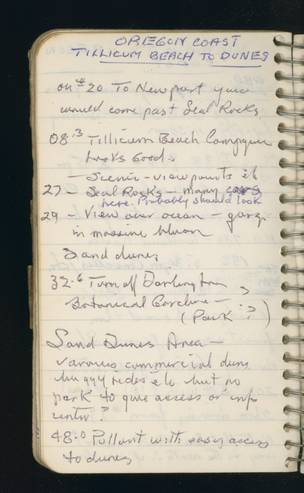 OREGON COAST
TILLICUM BEACH TO DUNES
on #20 To Newport you
would come past Seal Rocks
08.3 Tillicum Beach Campgrn
looks Good.
— Scenic - viewpoints etc
27 - Seal Rocks - many cars
here. Probably should look
29 - View over ocean - gorge
in massive
Sand dunes
32.6 Turnoff Darlington
Botanical Gardens - ?
(Park?)
Sand Dunes Area -
various commercial dune
buggy rides etc but no
park to give access or info
centr?
48.0 Pullout with easy access
to dunes